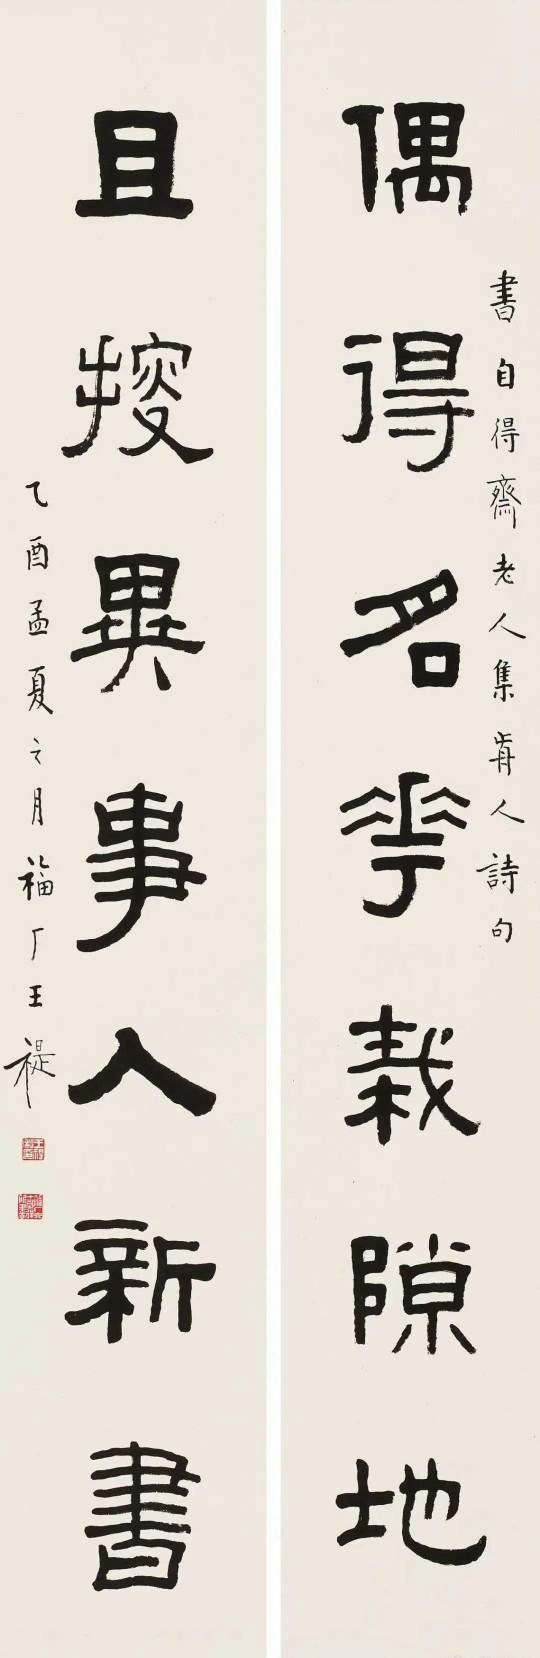 偶得名花栽隙地
書自得齋老人集前人詩句
且搜異事入新書
乙酉孟夏之月福厂王禔